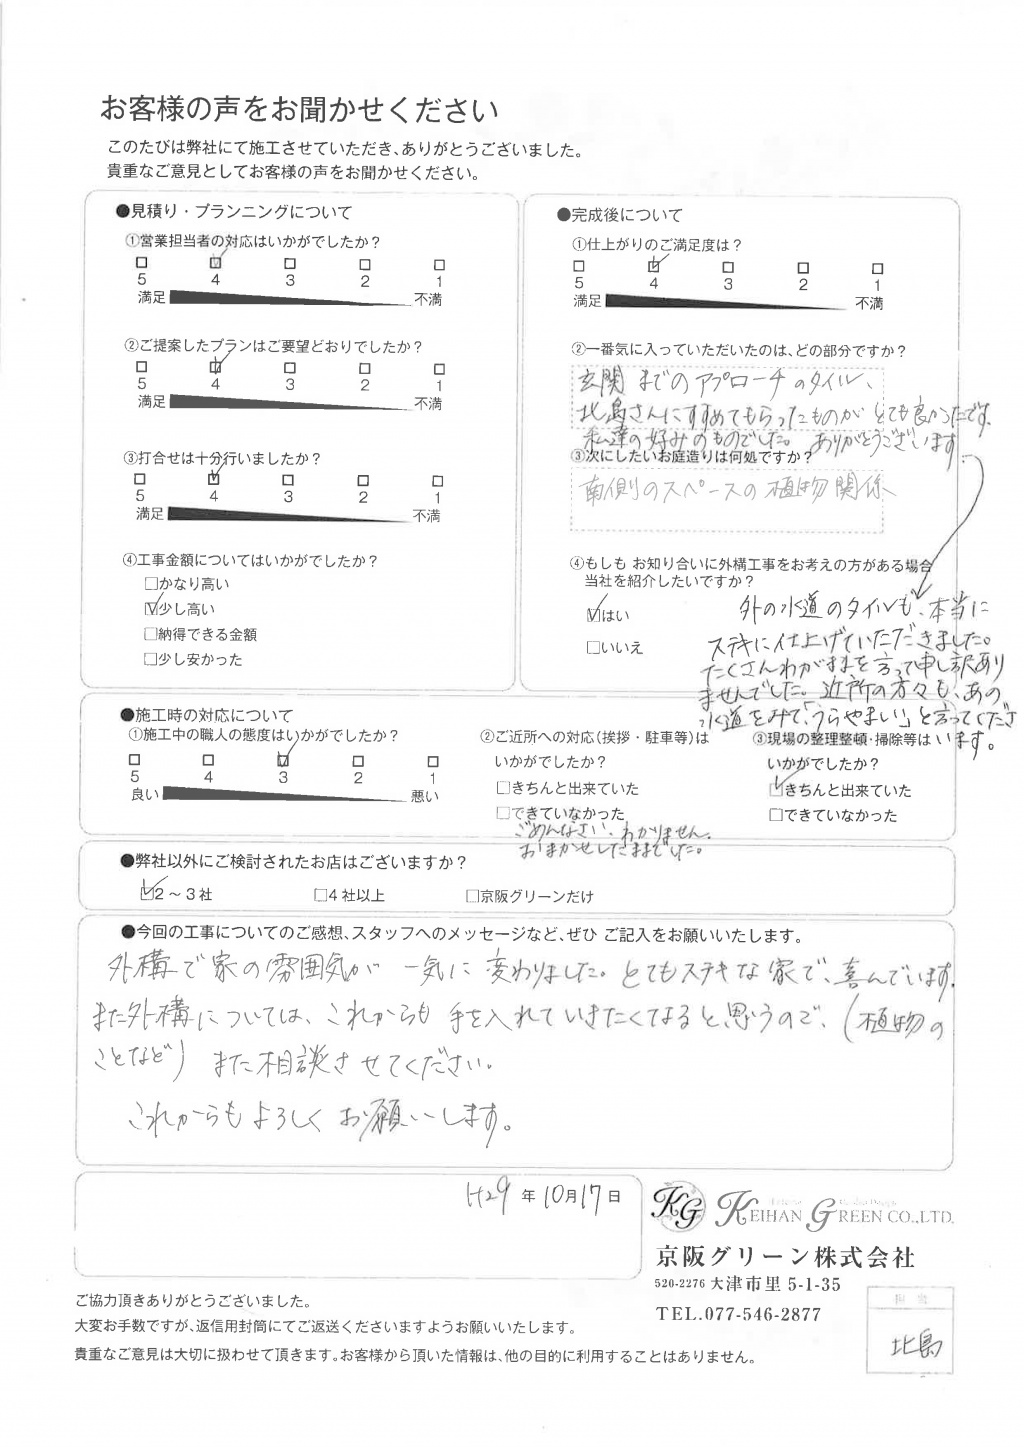 お客様の声をお聞かせください
このたびは弊社にて施工させていただき、ありがとうございました。
貴重なご意見としてお客様の声をお聞かせください。
●見積り・プランニングについて
①営業担当者の対応はいかがでしたか?
5 4 3 2 1
満足 不満
②ご提案したプランはご要望どおりでしたか?
5 4 3 2 1
満足 不満
③打合せは十分行いましたか?
5 4 3 2 1
満足 不満
④工事金額についてはいかがでしたか?
□かなり高い
☑少し高い
□納得できる金額
□少し安かった
●完成後について
①仕上がりのご満足度は?
5 4 3 2 1
満足 不満
②一番気に入っていただいたのは、どの部分ですか?
玄関までのアプローチのタイル、
北島さんにすすめてもらったものがとても良かったです。
私達の好みのものでした。ありがとうございます。
③次にしたいお庭造りは何処ですか?
南側のスペースの植物関係
④もしも お知り合いに外構工事をお考えの方がある場合
当社を紹介したいですか?
☑はい
□いいえ
外の水道のタイルも、本当に
ステキに仕上げていただきました。
たくさんわがままを言って申し訳あり
ませんでした。近所の方々も、あの
水道をみて、「うらやましい」と言ってくださ
います。
●施工時の対応について
①施工中の職人の態度はいかがでしたか?
5 4 3 2 1
良い 悪い
②ご近所への対応(挨拶・駐車等)は
いかがでしたか?
□きちんと出来ていた
□できていなかった
ごめんなさい、わかりません。
おまかせしたままでした。
③現場の整理整頓・掃除等は
いかがでしたか?
☑きちんと出来ていた
□できていなかった
●弊社以外にご検討されたお店はございますか?
☑2～3社 □4社以上 □京阪グリーンだけ
●今回の工事についてのご感想、スタッフへのメッセージなど、ぜひ ご記入をお願いいたします。
外構で家の雰囲気が一気に変わりました。とてもステキな家で、喜んでいます。
また外構については、これからも手を入れていきたくなると思うので、(植物の
ことなど) また相談させてください。
これからもよろしくお願いします。
H29年10月17日
KG KEIHAN GREEN CO.,LTD.
京阪グリーン株式会社
520-2276 大津市里 5-1-35
TEL.077-546-2877
ご協力頂きありがとうございました。
大変お手数ですが、返信用封筒にてご返送くださいますようお願いいたします。
貴重なご意見は大切に扱わせて頂きます。お客様から頂いた情報は、他の目的に利用することはありません。
担当
北島